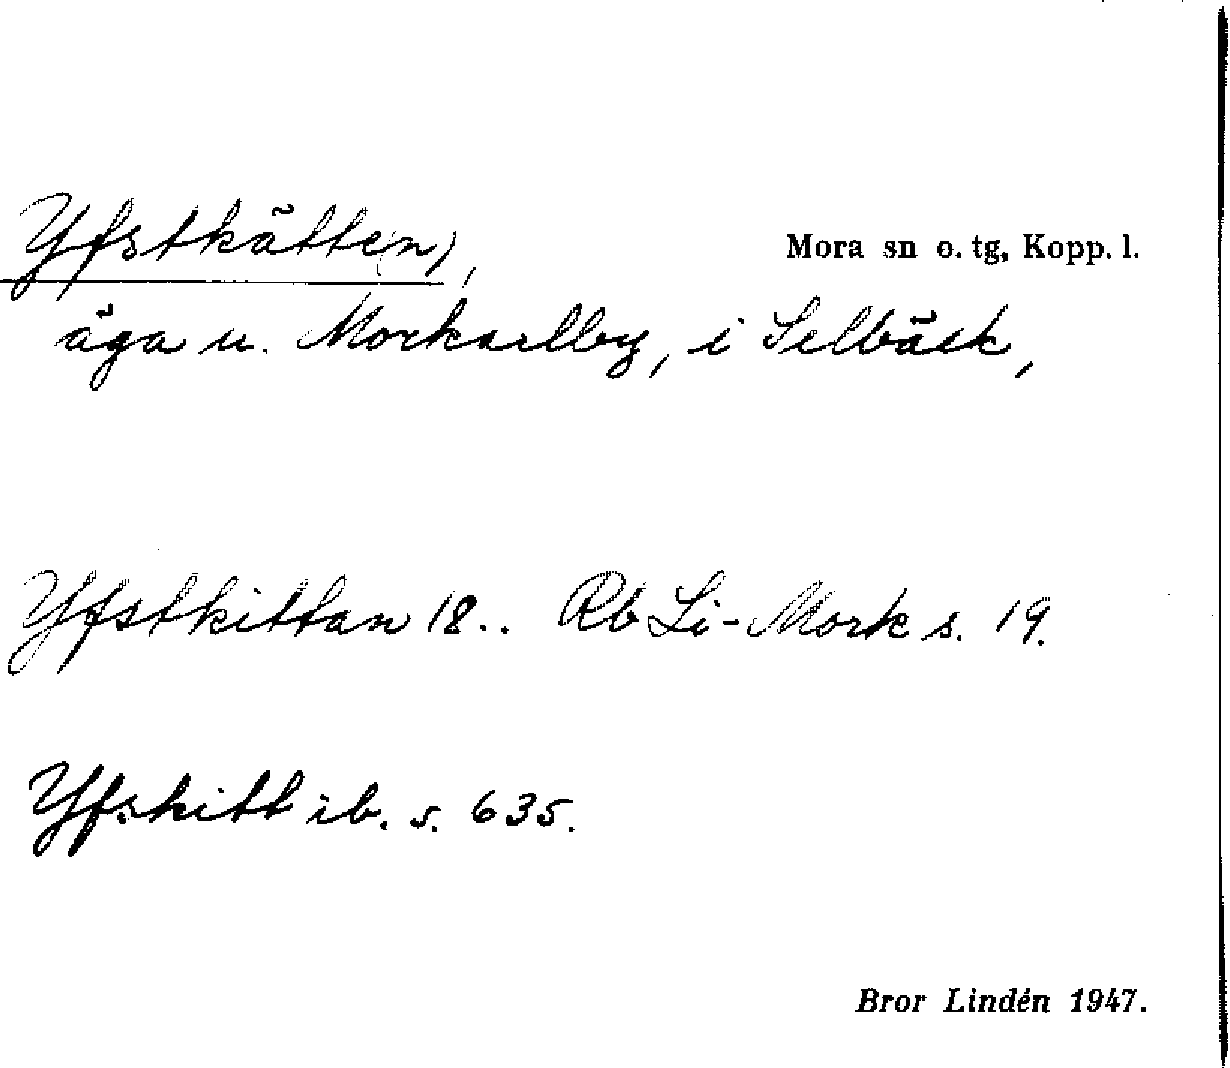 Yfstkätt(en),
Mora sn o. tg, Kopp. l.
äga u. Morkarlby, i Selbäck,
Yfstkittan 18.. Rb Li-Mork s. 19.
Yfskitt ib. s. 635.
Bror Lindén 1947.